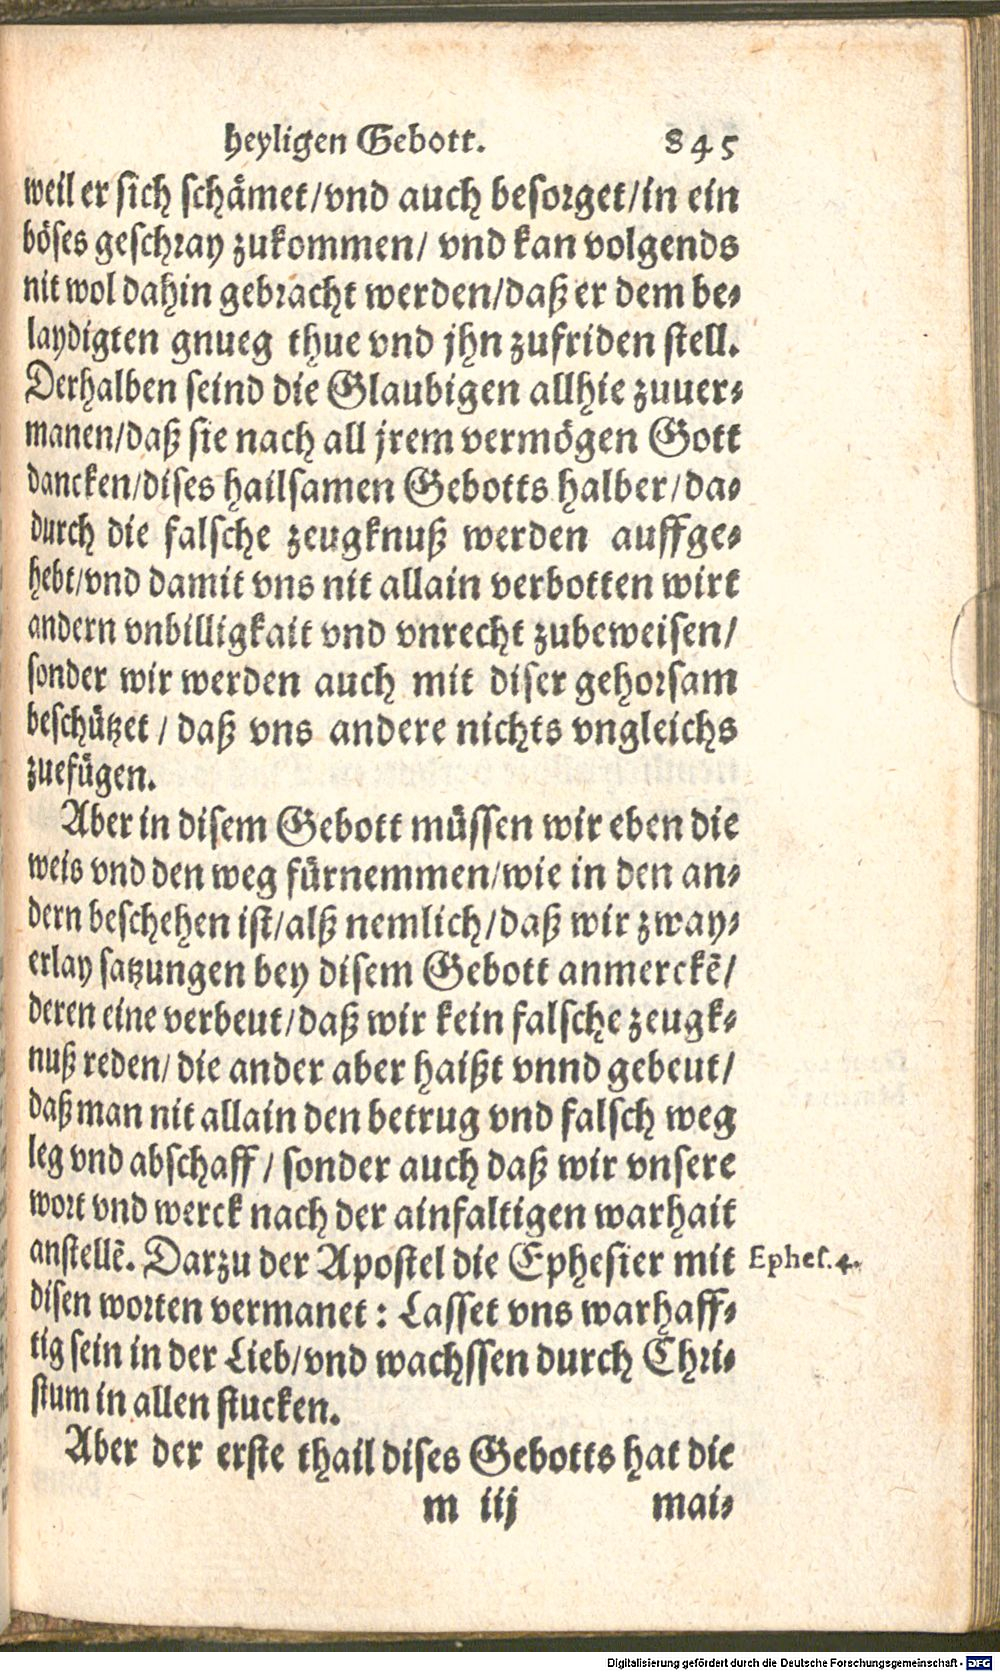 heyligen Gebott. 845
weil er sich schämet/vnd auch besorget/in ein
böses geschray zukommen/ vnd kan volgends
nit wol dahin gebracht werden/daß er dem be-
laydigten gnueg thue vnd jhn zufriden stell.
Derhalben seind die Glaubigen allhie zuuer-
manen/daß sie nach all jrem vermögen Gott
dancken/dises hailsamen Gebotts halber/da-
durch die falsche zeugknuß werden auffge-
hebt/vnd damit vns nit allain verbotten wirt
andern vnbilligkait vnd vnrecht zubeweisen/
sonder wir werden auch mit diser gehorsam
beschützet / daß vns andere nichts vngleichs
zuefügen.
Aber in disem Gebott müssen wir eben die
weis vnd den weg fürnemmen/wie in den an-
dern beschehen ist/alß nemlich/daß wir zway-
erlay satzungen bey disem Gebott anmerckẽ/
deren eine verbeut/daß wir kein falsche zeugk-
nuß reden/ die ander aber haißt vnnd gebeut/
daß man nit allain den betrug vnd falsch weg
leg vnd abschaff / sonder auch daß wir vnsere
wort vnd werck nach der ainfaltigen warhait
anstellẽ. Darzu der Apostel die Ephesier mit Ephes. 4.
disen worten vermanet : Lasset vns warhaff-
tig sein in der Lieb/vnd wachssen durch Chri-
stum in allen stucken.
Aber der erste thail dises Gebotts hat die
m iij mai-
Digitalisierung gefördert durch die Deutsche Forschungsgemeinschaft - DFG